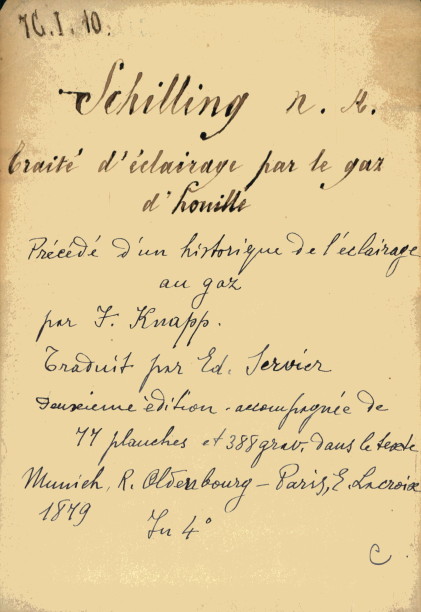 IC. I. 10.
Schilling n. H.
Traité d'éclairage par le gaz
d'houille
Précédé d'un historique de l'éclairage
au gaz
par F. Knapp.
Traduit par Ed. Servier
Deuxième édition - accompagnée de
77 planches et 388 grav. dans le texte
Munich, R. Oldenbourg - Paris, E. Lacroix
1879
In 4°
C